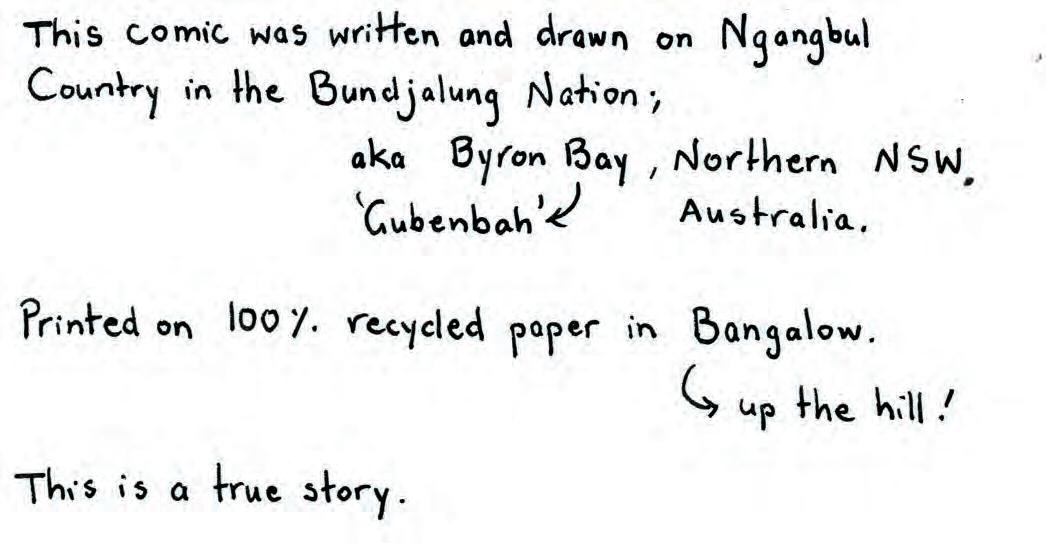 This comic was written and drawn on Ngangbul
Country in the Bundjalung Nation;
aka Byron Bay, Northern NSW.
'Gubenbah' Australia.
Printed on 100%. recycled paper in Bangalow.
up the hill!
This is a true story.